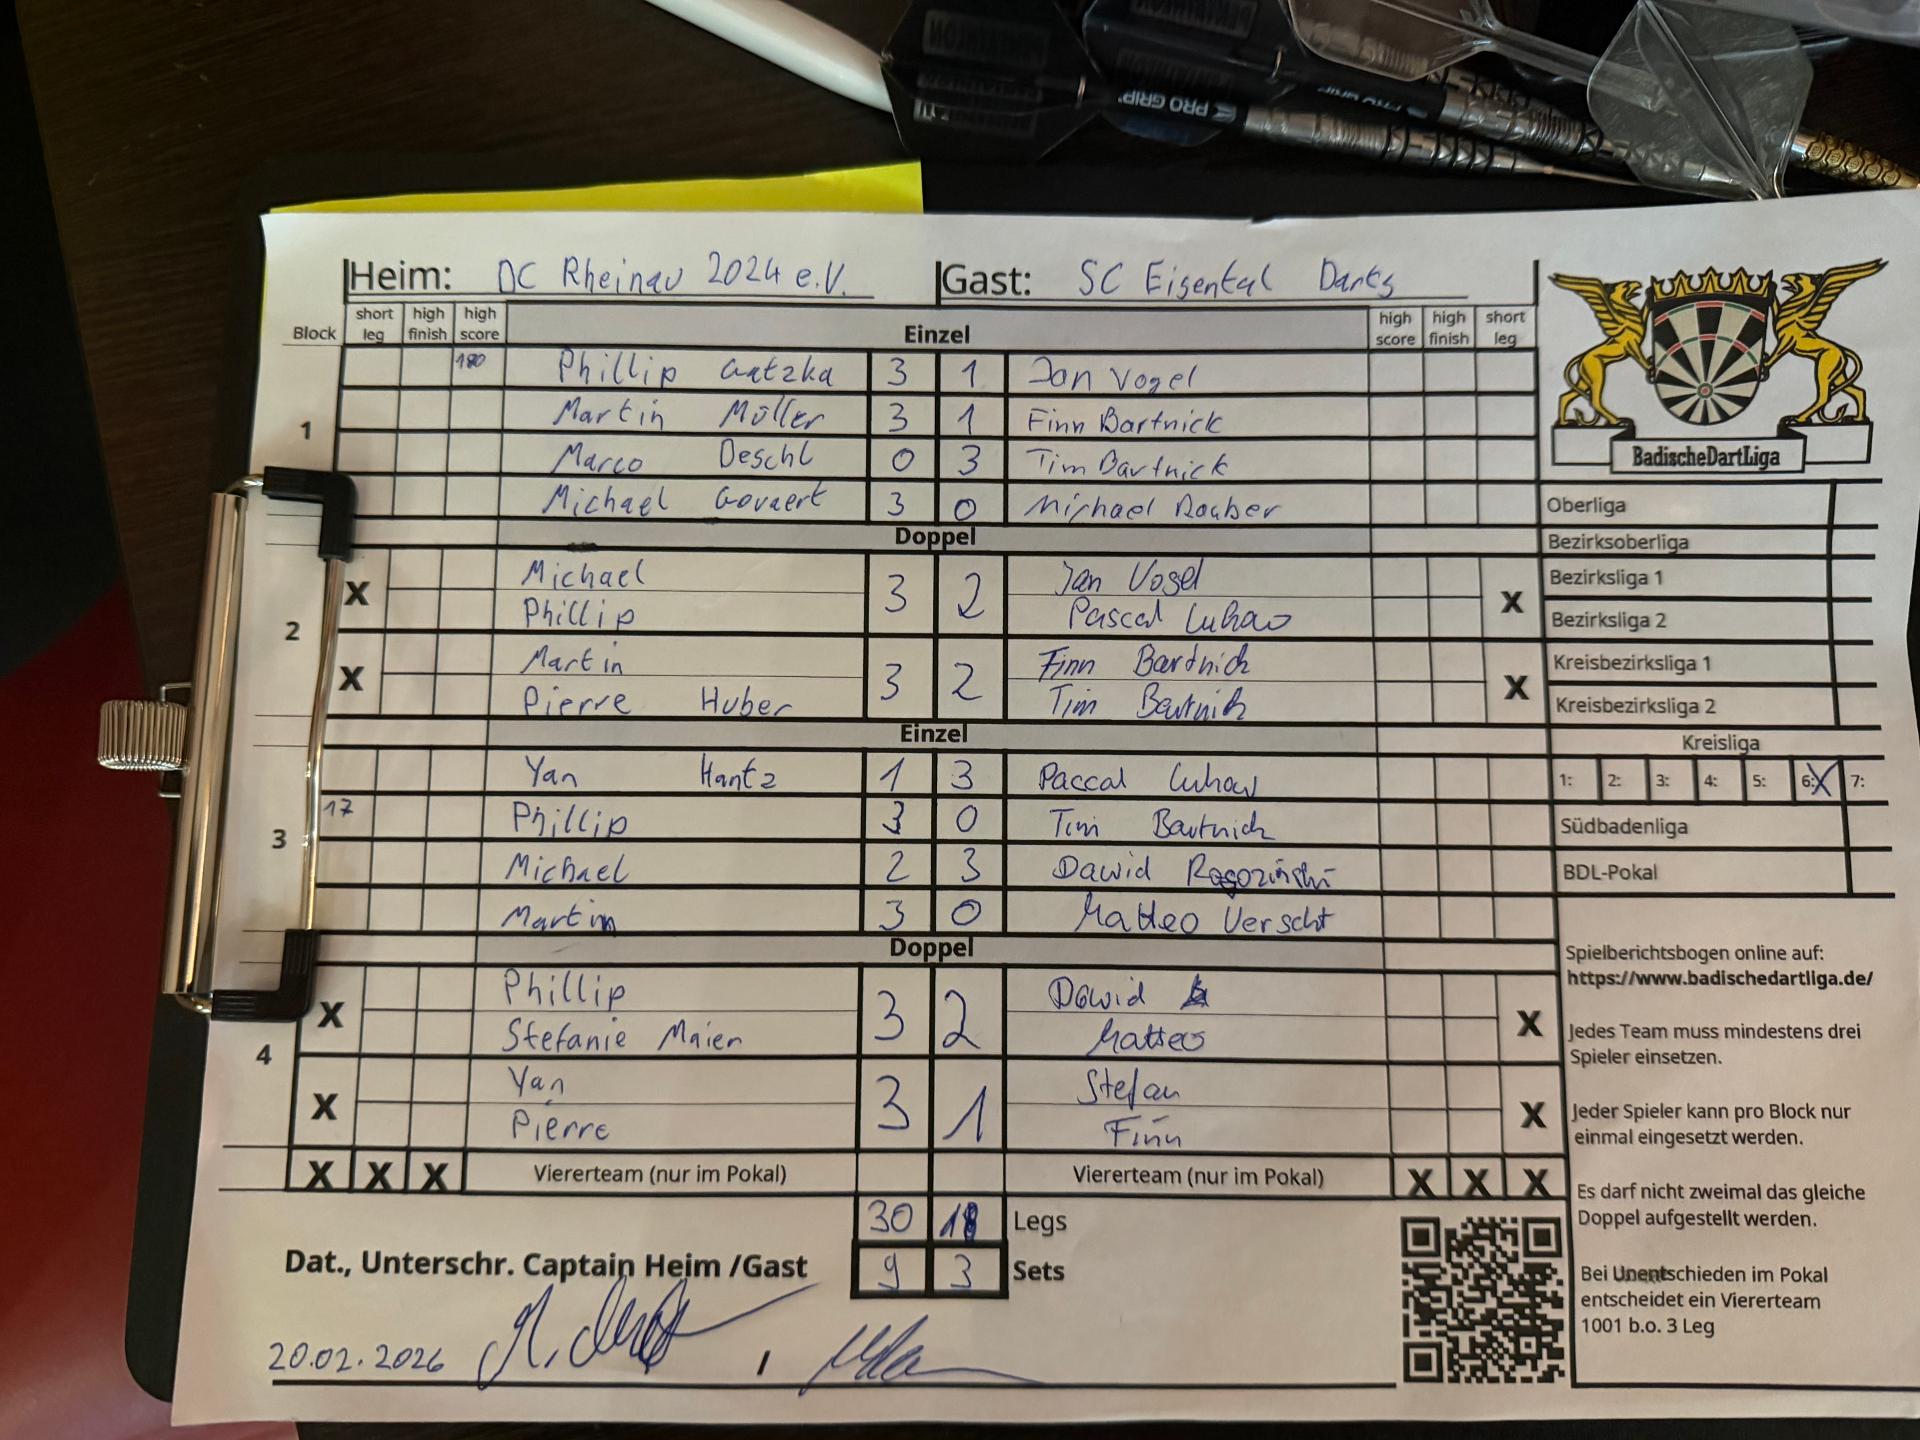 PRO GRIP
Heim: DC Rheinau 2024 e.V. Gast: SC Eisental Darts
Block short leg high finish high score Einzel high score high finish short leg
1
180 Phillip Gatzka 3 1 Jan Vogel
Martin Müller 3 1 Finn Bartnick
Marco Deschl 0 3 Tim Bartnick
Michael Govaert 3 0 Michael Rauber
Doppel
2
X Michael 3 2 Jan Vogel X
Phillip Pascal Luhaw
X Martin 3 2 Finn Bartnick X
Pierre Huber Tim Bartnick
Einzel
3
Yan Hantz 1 3 Pascal Luhaw
17 Phillip 3 0 Tim Bartnick
Michael 2 3 Dawid Rogoziński
Martin 3 0 Matteo Verscht
Doppel
4
X Phillip 3 2 Dawid X
Stefanie Maier Matteo
X Yan 3 1 Stefan X
Pierre Finn
X X X Viererteam (nur im Pokal) Viererteam (nur im Pokal) X X X
30 18 Legs
9 3 Sets
Dat., Unterschr. Captain Heim /Gast
20.02.2026 /
BadischeDartLiga
Oberliga
Bezirksoberliga
Bezirksliga 1
Bezirksliga 2
Kreisbezirksliga 1
Kreisbezirksliga 2
Kreisliga
1: 2: 3: 4: 5: 6: X 7:
Südbadenliga
BDL-Pokal
Spielberichtsbogen online auf:
https://www.badischedartliga.de/
Jedes Team muss mindestens drei
Spieler einsetzen.
Jeder Spieler kann pro Block nur
einmal eingesetzt werden.
Es darf nicht zweimal das gleiche
Doppel aufgestellt werden.
Bei Unentschieden im Pokal
entscheidet ein Viererteam
1001 b.o. 3 Leg